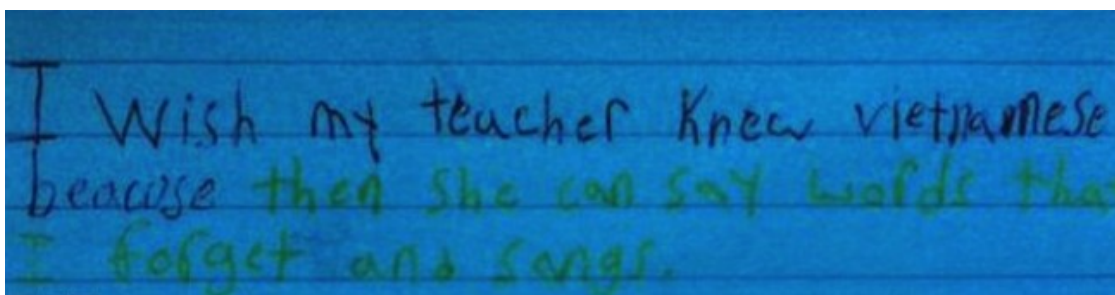 I Wish my teacher Knew vietnamese
beacuse then she can say words tha
I forget and songs.